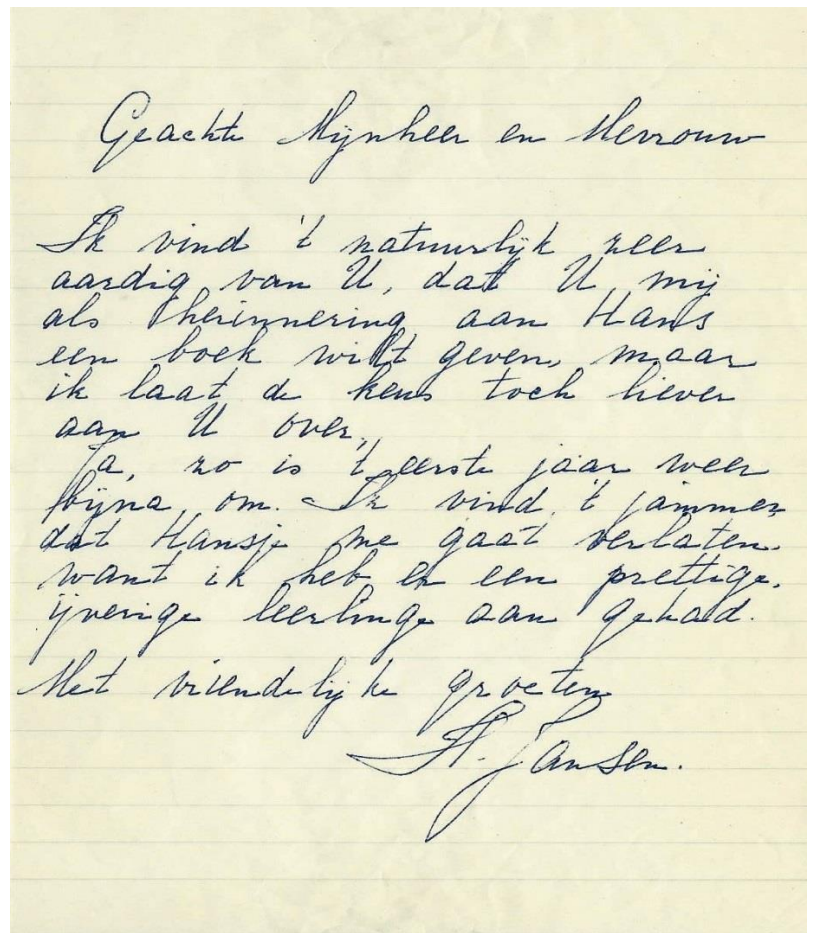 Geachte Mijnheer en Mevrouw
Ik vind 't natuurlijk zeer
aardig van U, dat U mij
als herinnering aan Hans
een boek wilt geven, maar
ik laat de keus toch liever
aan U over.
Ja, zo is 't eerste jaar weer
bijna om. Ik vind 't jammer
dat Hansje me gaat verlaten.
want ik heb er een prettige,
ijverige leerlinge aan gehad.
Met vriendelijke groeten
A. Jansen.